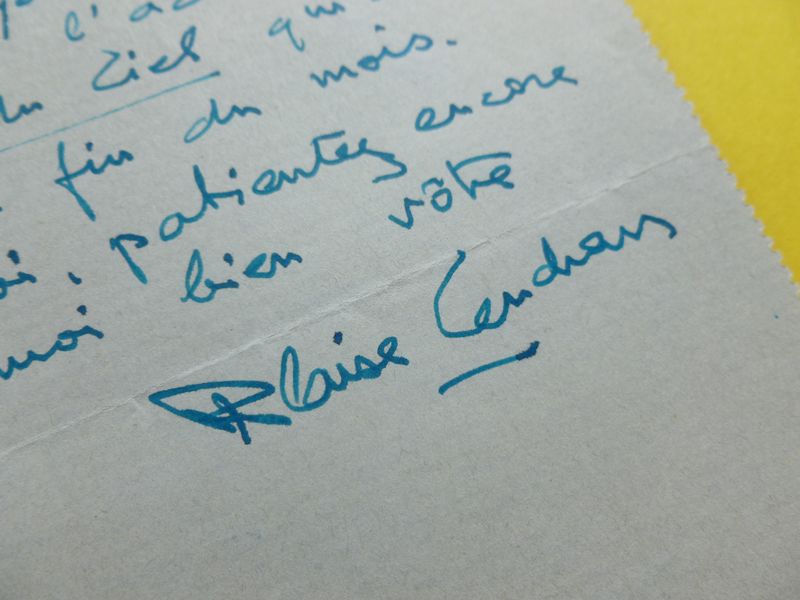 l'a
du Ciel qui
fin du mois.
, patientez encore
moi bien vôtre
Blaise Cendrars